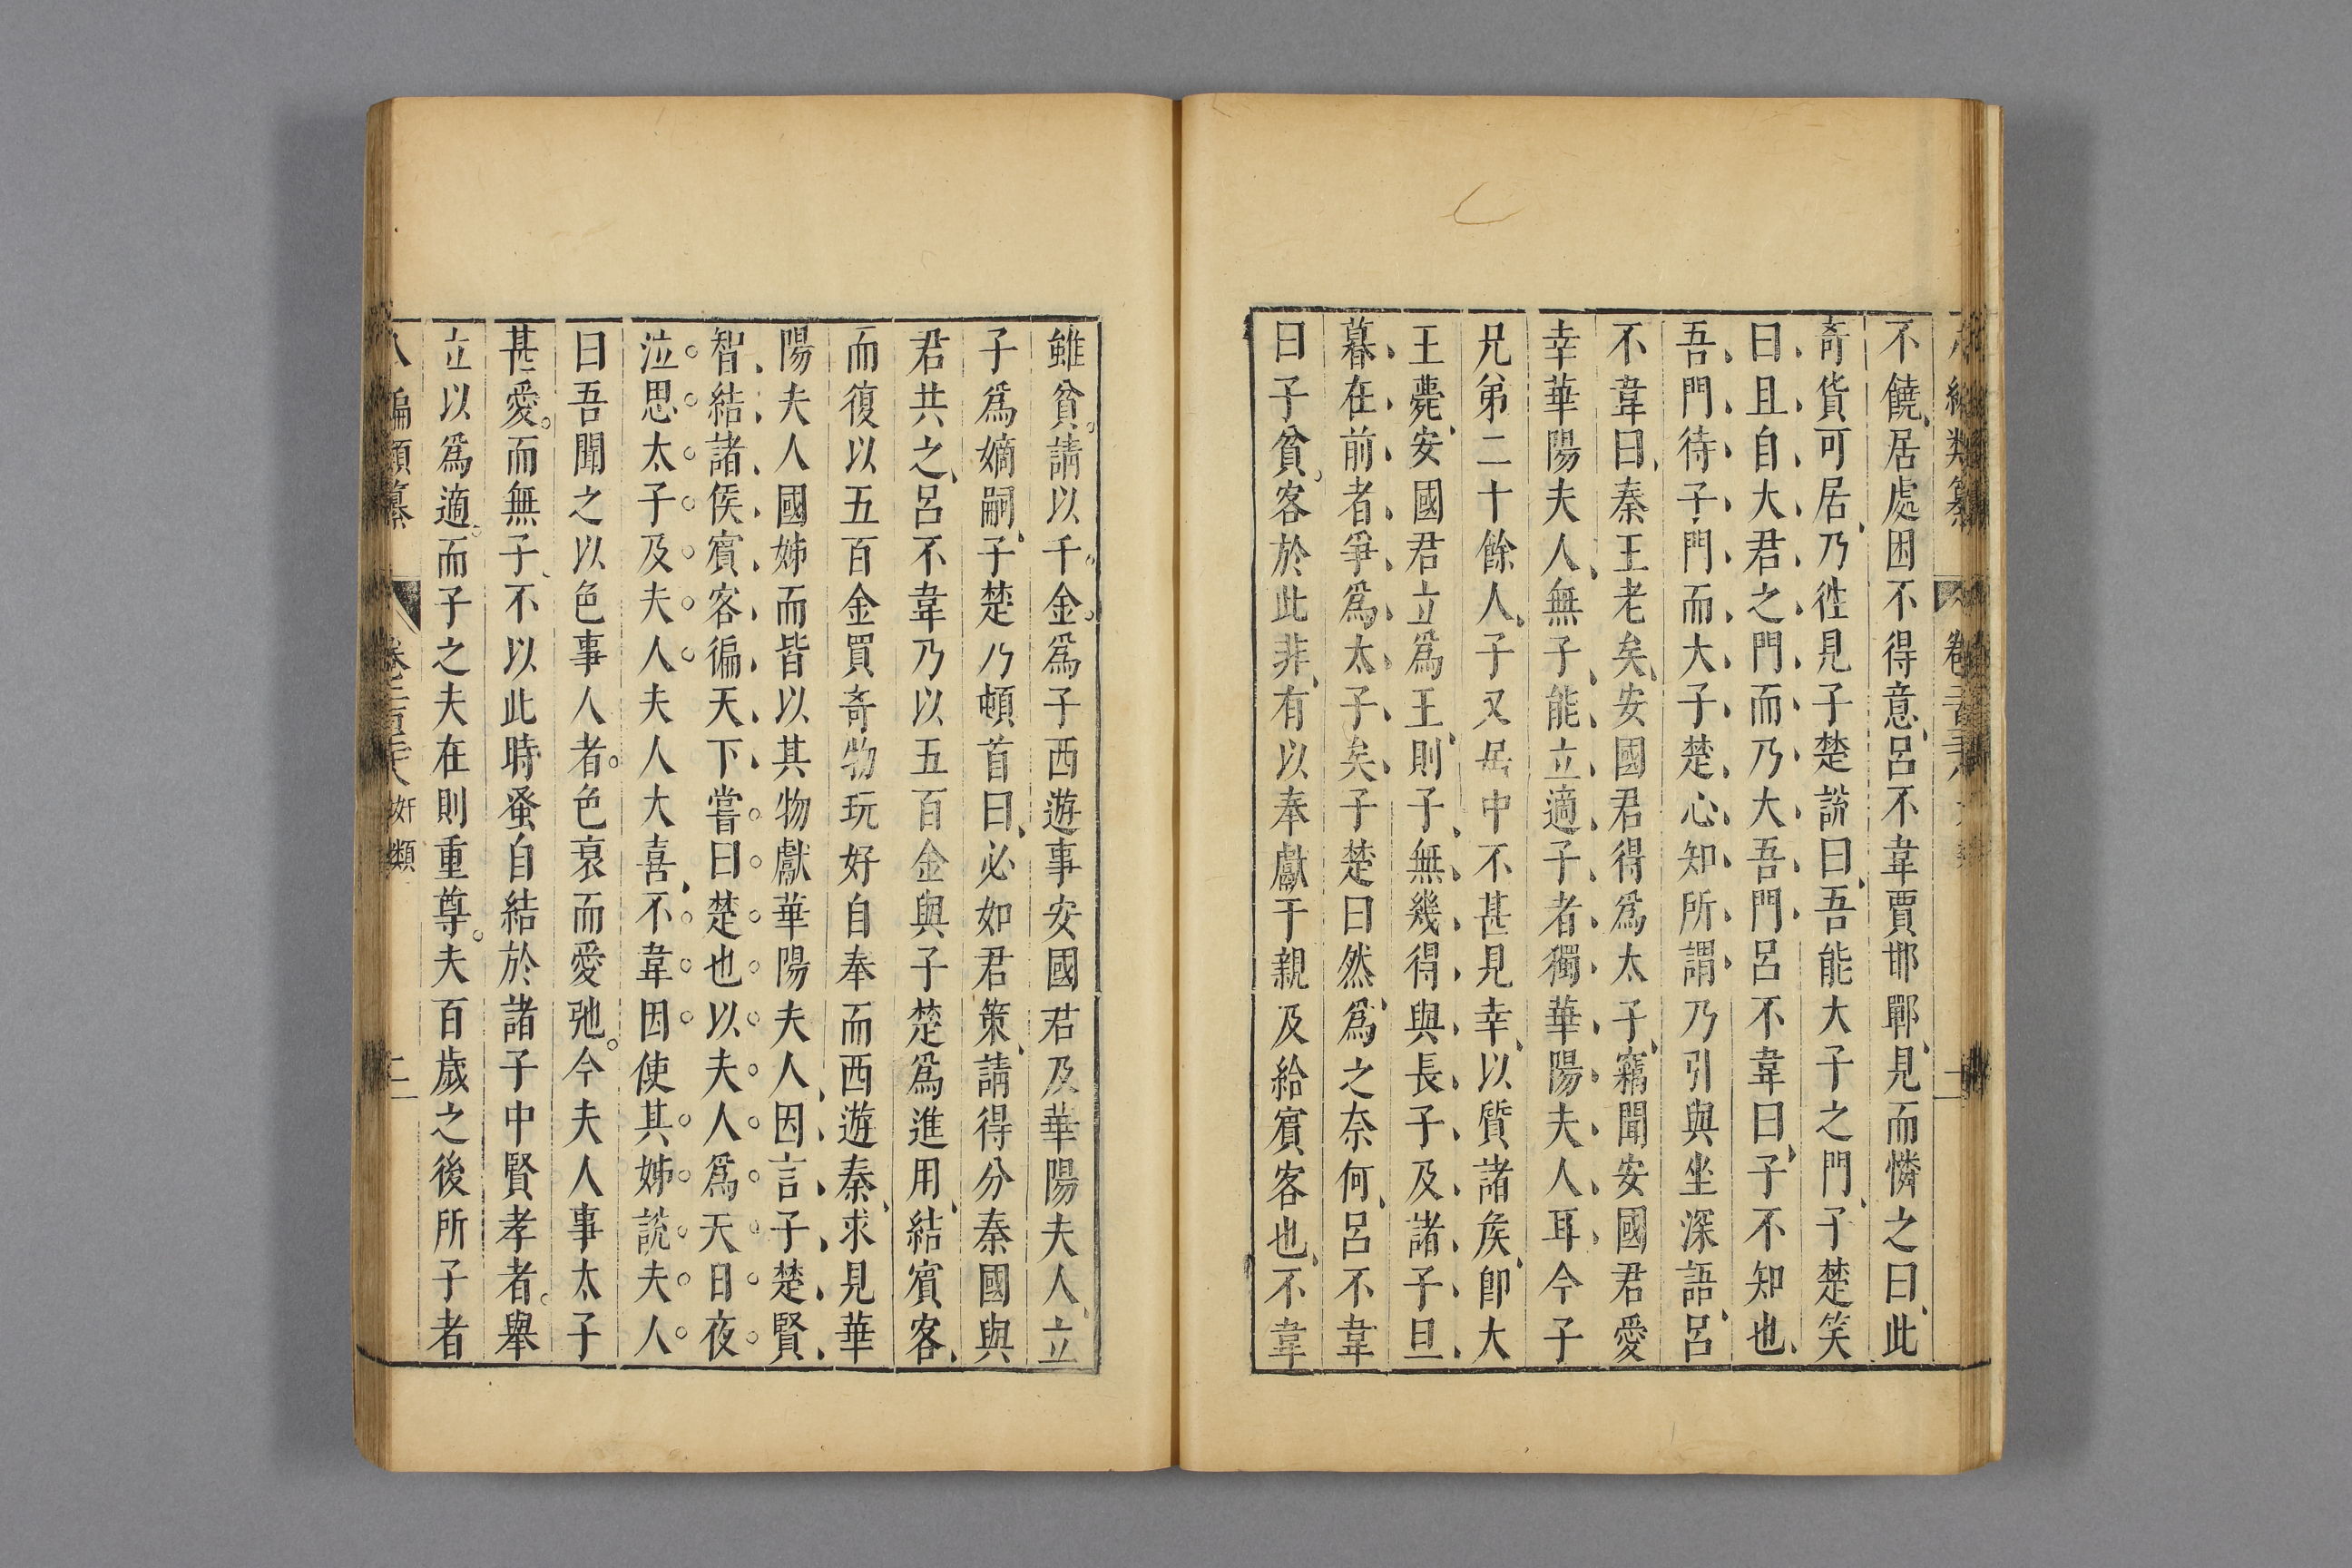 不饒居處困不得意呂不韋賈邯鄲見而憐之曰此
奇貨可居乃徃見子楚說曰吾能大子之門子楚笑
曰且自大君之門而乃大吾門呂不韋曰子不知也
吾門待子門而大子楚心知所謂乃引與坐深語呂
不韋曰秦王老矣安國君得爲太子竊聞安國君愛
幸華陽夫人無子能立適子者獨華陽夫人耳今子
兄弟二十餘人子又居中不甚見幸以質諸矦卽大
王薨安國君立爲王則子無幾得與長子及諸子旦
暮在前者爭爲太子矣子楚曰然爲之奈何呂不韋
曰子貧客於此非有以奉獻于親及給賓客也不韋
雖貧請以千金爲子西遊事安國君及華陽夫人立
子爲嫡嗣子楚乃頓首曰必如君策請得分秦國與
君共之呂不韋乃以五百金與子楚爲進用結賓客
而復以五百金買奇物玩好自奉而西遊秦求見華
陽夫人國姊而皆以其物獻華陽夫人因言子楚賢
智結諸侯賓客徧天下嘗曰楚也以夫人爲天日夜
泣思太子及夫人夫人大喜不韋因使其姊說夫人
曰吾聞之以色事人者色衰而愛弛今夫人事太子
甚愛而無子不以此時蚤自結於諸子中賢孝者舉
立以爲適而子之夫在則重尊夫百歲之後所子者
八編類纂 奸類 二